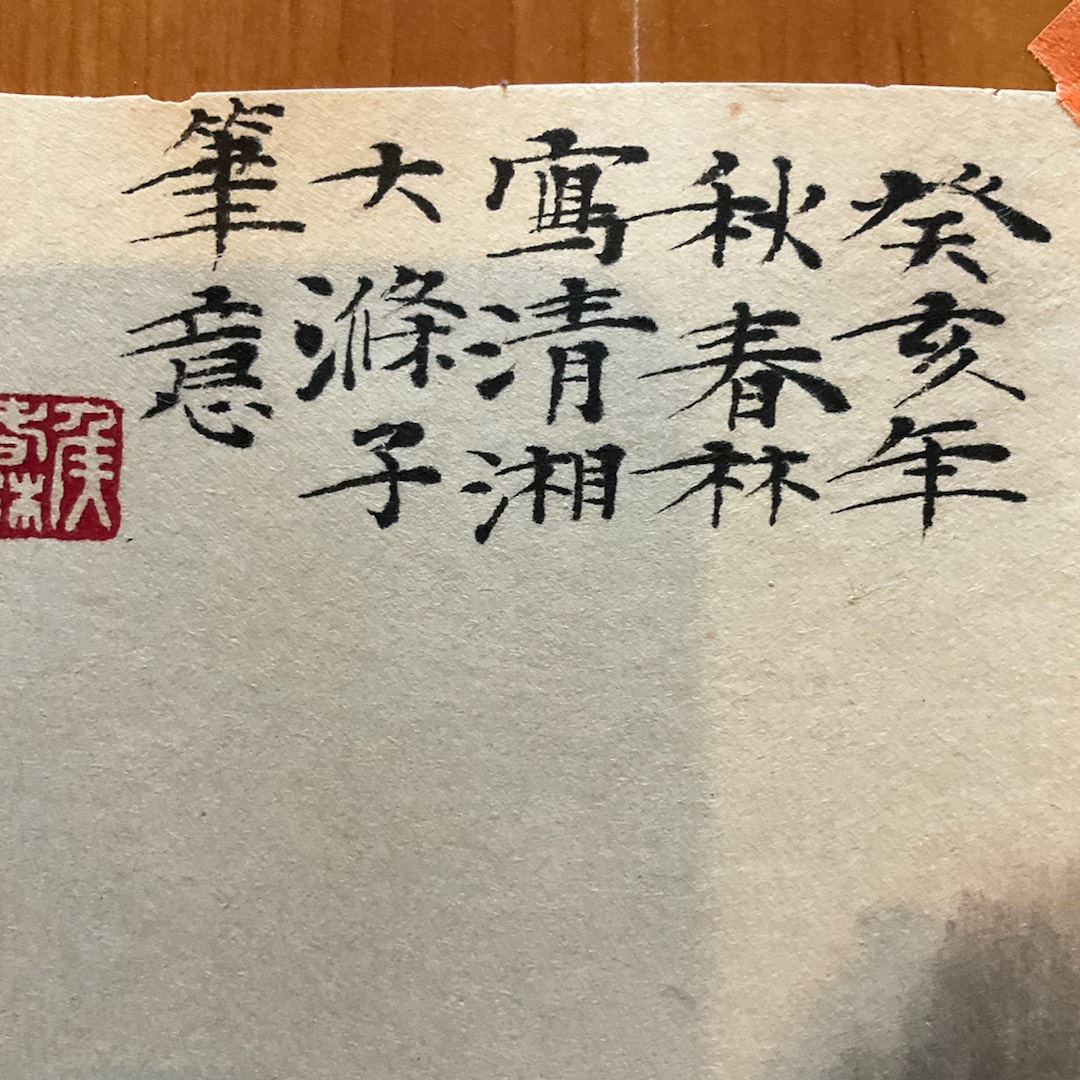 癸亥年
秋春林
寫清湘
大滌子
筆意